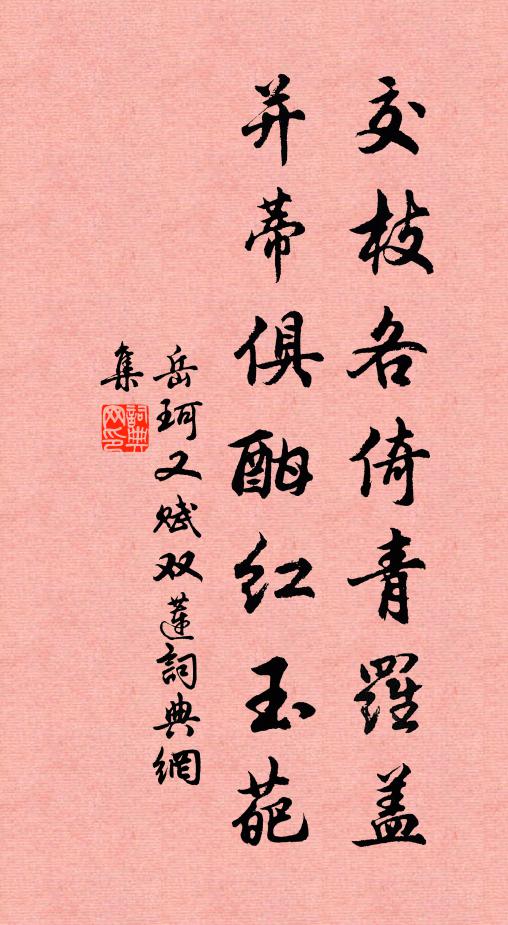 交枝各倚青羅盖
并蒂俱酣红玉葩
岳珂又赋双蓮詞典網
集
詞典网印